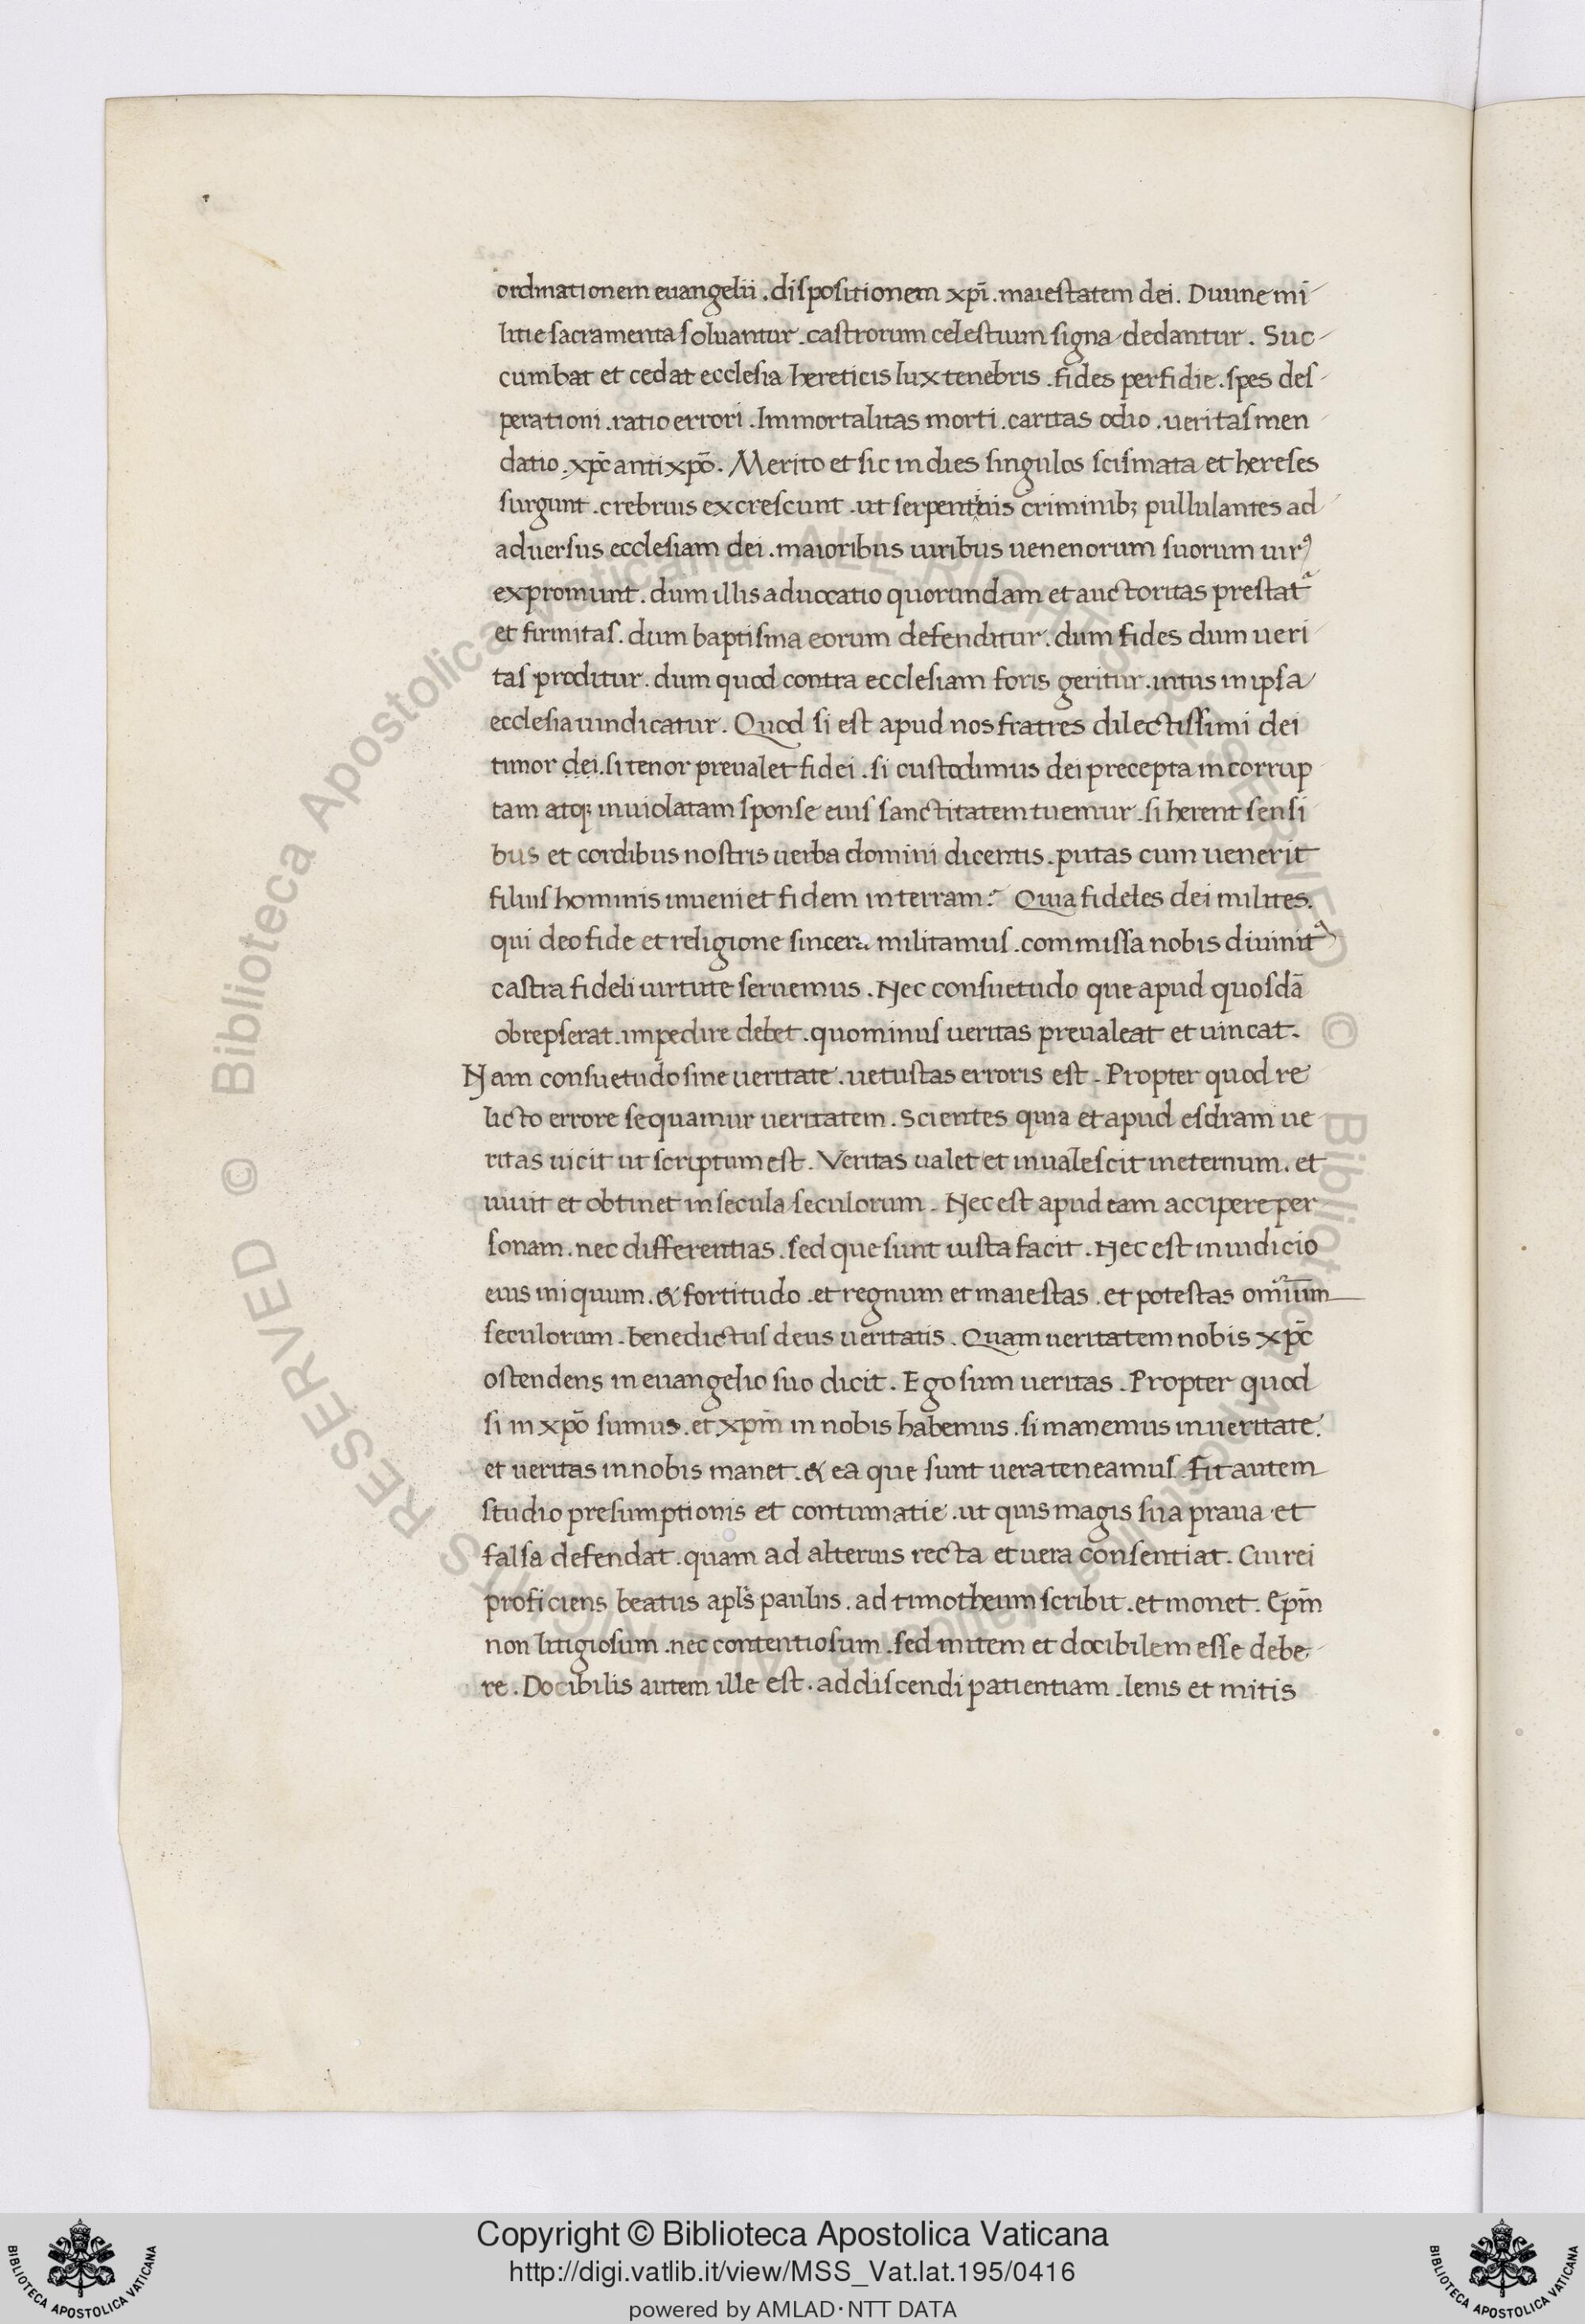 ordinationem euangelii . dispositionem xp̄i . maiestatem dei . Diuine mi
litie sacramenta soluantur . castrorum celestium signa dedantur . Suc
cumbat et cedat ecclesia hereticis lux tenebris . fides perfidie . spes des
perationi . ratio errori . Immortalitas morti . caritas odio . ueritas men
datio . xp̄c antixp̄o . Merito et sic in dies singulos scismata et hereses
surgunt . crebrius excrescunt . ut serpentinis criminibꝫ pullulantes ad
aduersus ecclesiam dei . maioribus uiribus uenenorum suorum uirꝰ
expromunt . dum illis aduocatio quorundam et auctoritas prestatᷓ
et firmitas . dum baptisma eorum defenditur . dum fides dum ueri
tas proditur . dum quod contra ecclesiam foris geritur . intus in ipsa
ecclesia uindicatur . Quod si est apud nos fratres dilectissimi dei
timor dei . si tenor preualet fidei . si custodimus dei precepta incorrup
tam atqꝫ inuiolatam sponse eius sanctitatem tuemur . si herent sensi
bus et cordibus nostris uerba domini dicentis . putas cum uenerit
filius hominis inueniet fidem in terram ? Quia fideles dei milites .
qui deo fide et religione sincera militamus . commissa nobis diuinitᷓ
castra fideli uirtute seruemus . Nec consuetudo que apud quosdā
obrepserat . impedire debet . quominus ueritas preualeat et uincat .
Nam consuetudo sine ueritate . uetustas erroris est . Propter quod re
licto errore sequamur ueritatem . Scientes quia et apud esdram ue
ritas uicit ut scriptum est . Veritas ualet et inualescit in eternum . et
uiuit et obtinet in secula seculorum . Nec est apud eam accipere per
sonam . nec differentias . sed que sunt iusta facit . Nec est in iudicio
eius iniquum . & fortitudo . et regnum et maiestas . et potestas omīum
seculorum . benedictus deus ueritatis . Quam ueritatem nobis xp̄c
ostendens in euangelio suo dicit . Ego sum ueritas . Propter quod
si in xp̄o sumus . et xp̄m in nobis habemus . si manemus in ueritate .
et ueritas in nobis manet . & ea que sunt uera teneamus . Fit autem
studio presumptionis et contumatie . ut quis magis sua praua et
falsa defendat . quam ad alterius recta et uera consentiat . Cui rei
proficiens beatus apl's paulus . ad timotheum scribit . et monet . Ep̄m
non litigiosum . nec contentiosum . sed mitem et docibilem esse debe
re . Docibilis autem ille est . ad discendi patientiam . lenis et mitis
Copyright © Biblioteca Apostolica Vaticana
http://digi.vatlib.it/view/MSS_Vat.lat.195/0416
powered by AMLAD·NTT DATA
BIBLIOTECA APOSTOLICA VATICANA
BIBLIOTECA APOSTOLICA VATICANA
© Biblioteca Apostolica Vaticana ALL RIGHTS RESERVED © Biblioteca Apostolica Vaticana ALL RIGHTS RESERVED